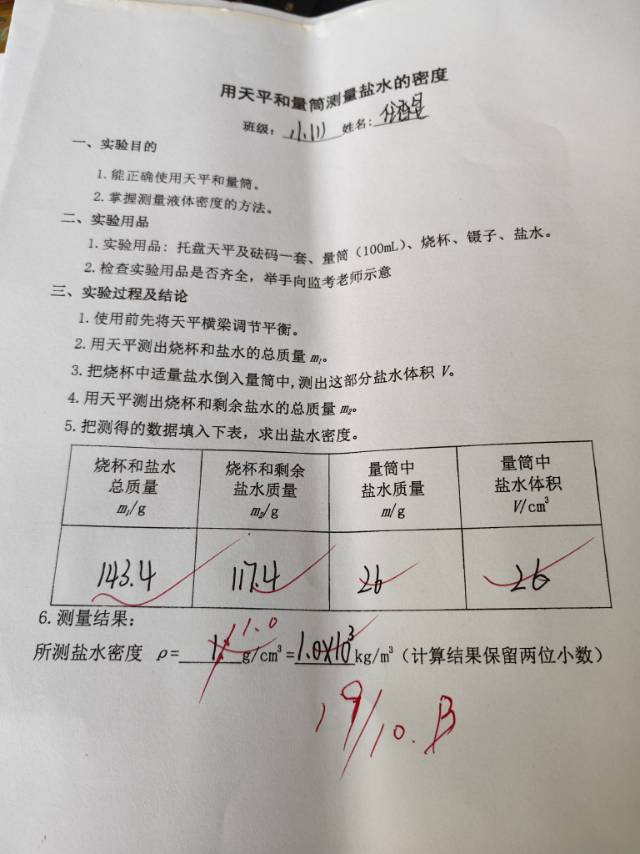 用天平和量筒测量盐水的密度
班级： 姓名：
一、实验目的
1.能正确使用天平和量筒。
2.掌握测量液体密度的方法。
二、实验用品
1.实验用品：托盘天平及砝码一套、量筒（100mL）、烧杯、镊子、盐水。
2.检查实验用品是否齐全，举手向监考老师示意
三、实验过程及结论
1.使用前先将天平横梁调节平衡。
2.用天平测出烧杯和盐水的总质量 m₁。
3.把烧杯中适量盐水倒入量筒中,测出这部分盐水体积 V。
4.用天平测出烧杯和剩余盐水的总质量 m₂。
5.把测得的数据填入下表，求出盐水密度。
烧杯和盐水 烧杯和剩余 量筒中 量筒中
总质量 盐水质量 盐水质量 盐水体积
m₁/g m₂/g m/g V/cm³
143.4 117.4 26 26
6.测量结果：
1.0
所测盐水密度 ρ= g/cm³=1.0×10³kg/m³（计算结果保留两位小数）
19/10.B